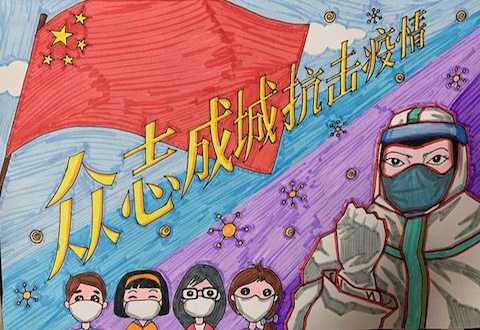 众志成城抗击疫情